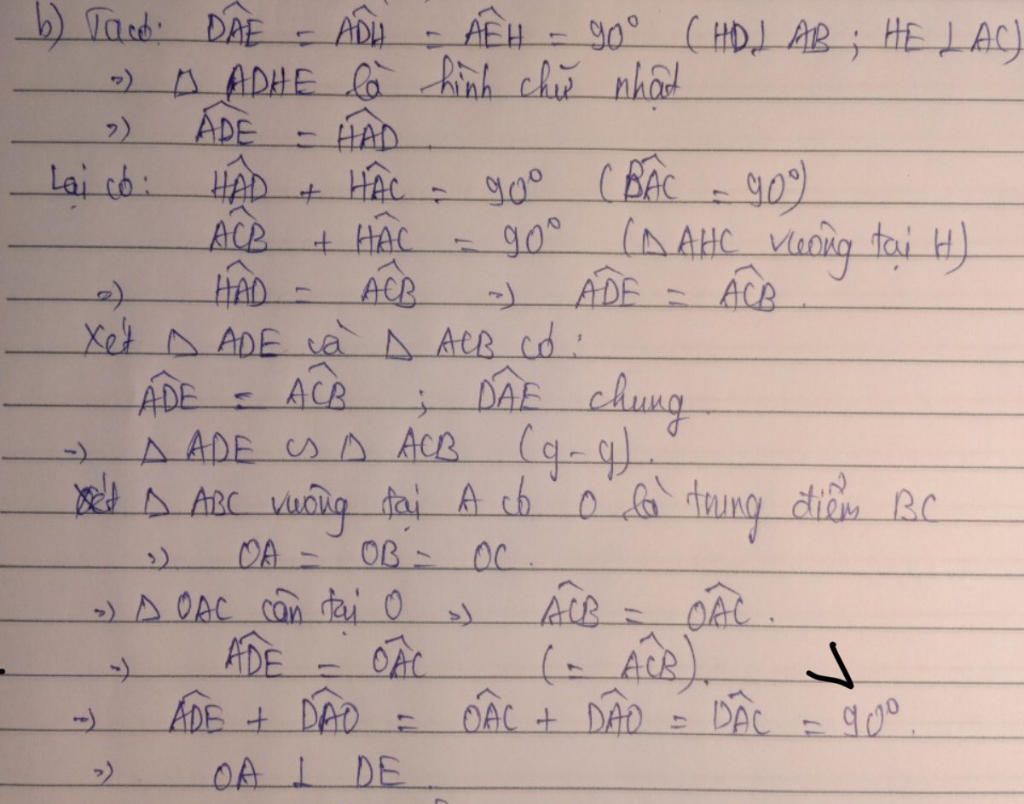 b) Ta có: DÂE = ADH = AEH = 90° (HD⊥ AB ; HE ⊥ AC)
=) △ ADHE là hình chữ nhật
=) ADE = HAD.
Lại có: HAD + HAC = 90° (BAC = 90°)
ACB + HAC = 90° (△ AHC vuông tại H)
=) HAD = ACB =) ADE = ACB.
Xét △ ADE và △ ACB có:
ADE = ACB ; DAE chung.
=) △ ADE ∽ △ ACB (g-g).
Xét △ ABC vuông tại A có O là trung điểm BC
=) OA = OB = OC.
=) △ OAC cân tại O =) ACB = OAC.
=) ADE = OAC (= ACB).
=) ADE + DAO = OAC + DAO = DAC = 90°.
=) OA ⊥ DE.